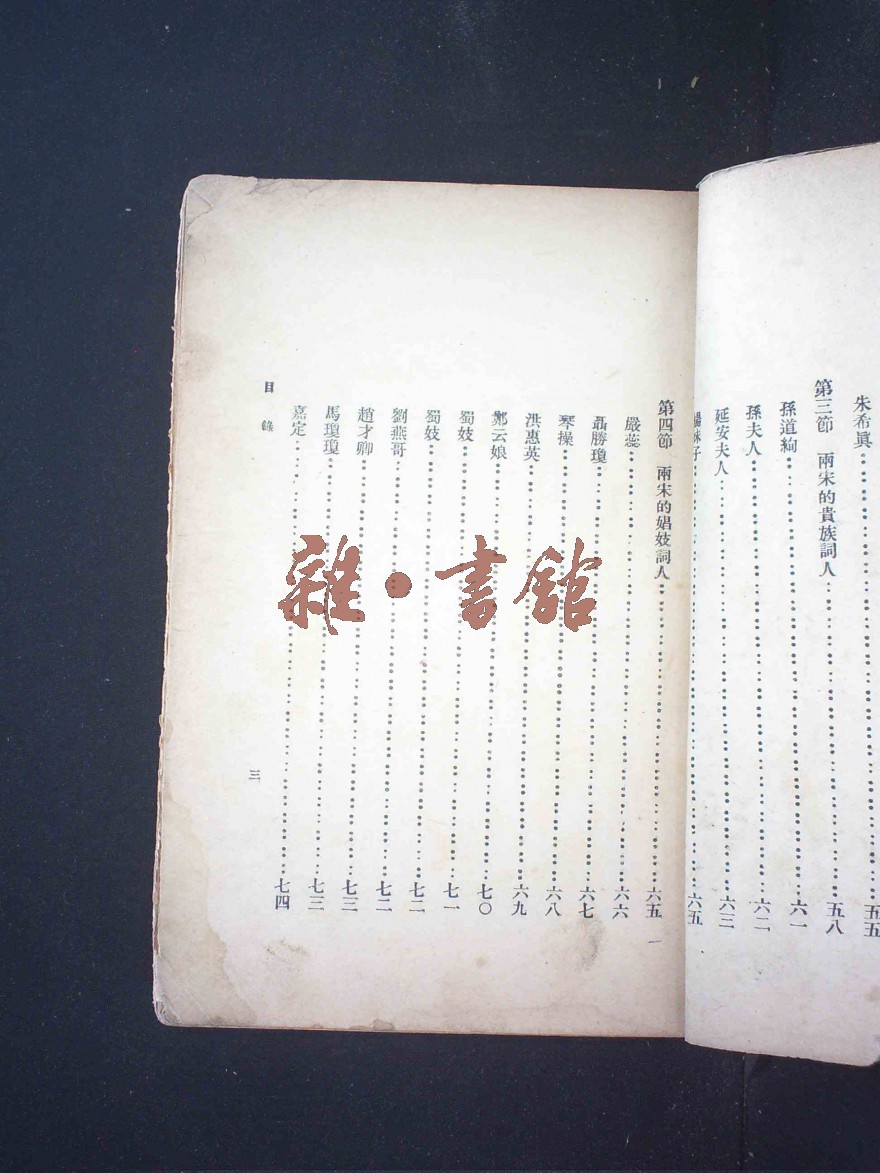 朱希眞……五五
第三節 兩宋的貴族詞人……五八
孫道絢……六一
孫夫人……六二
延安夫人……六三
妹子……六五
第四節 兩宋的娼妓詞人……六五
嚴蕊……六六
聶勝瓊……六七
琴操……六八
洪惠英……六九
鄭云娘……七〇
蜀妓……七一
蜀妓……七二
劉燕哥……七二
趙才卿……七三
馬瓊瓊……七三
嘉定……七四
目錄
三
雜·書館